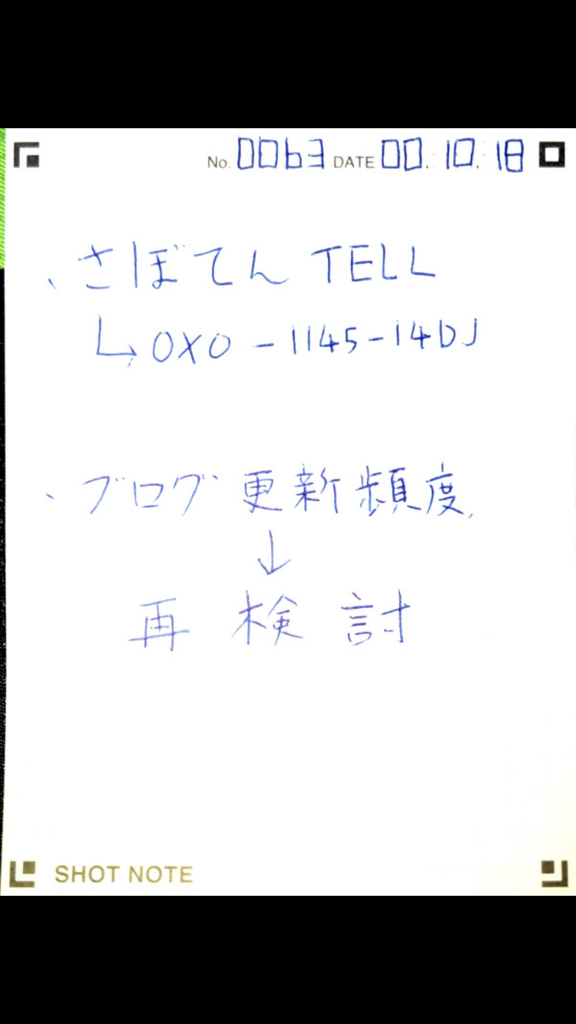 No. 0063 DATE 00.10.18
、さぼてん TELL
↳ OXO-1145-14DJ
、ブログ更新頻度
↓
再検討
SHOT NOTE